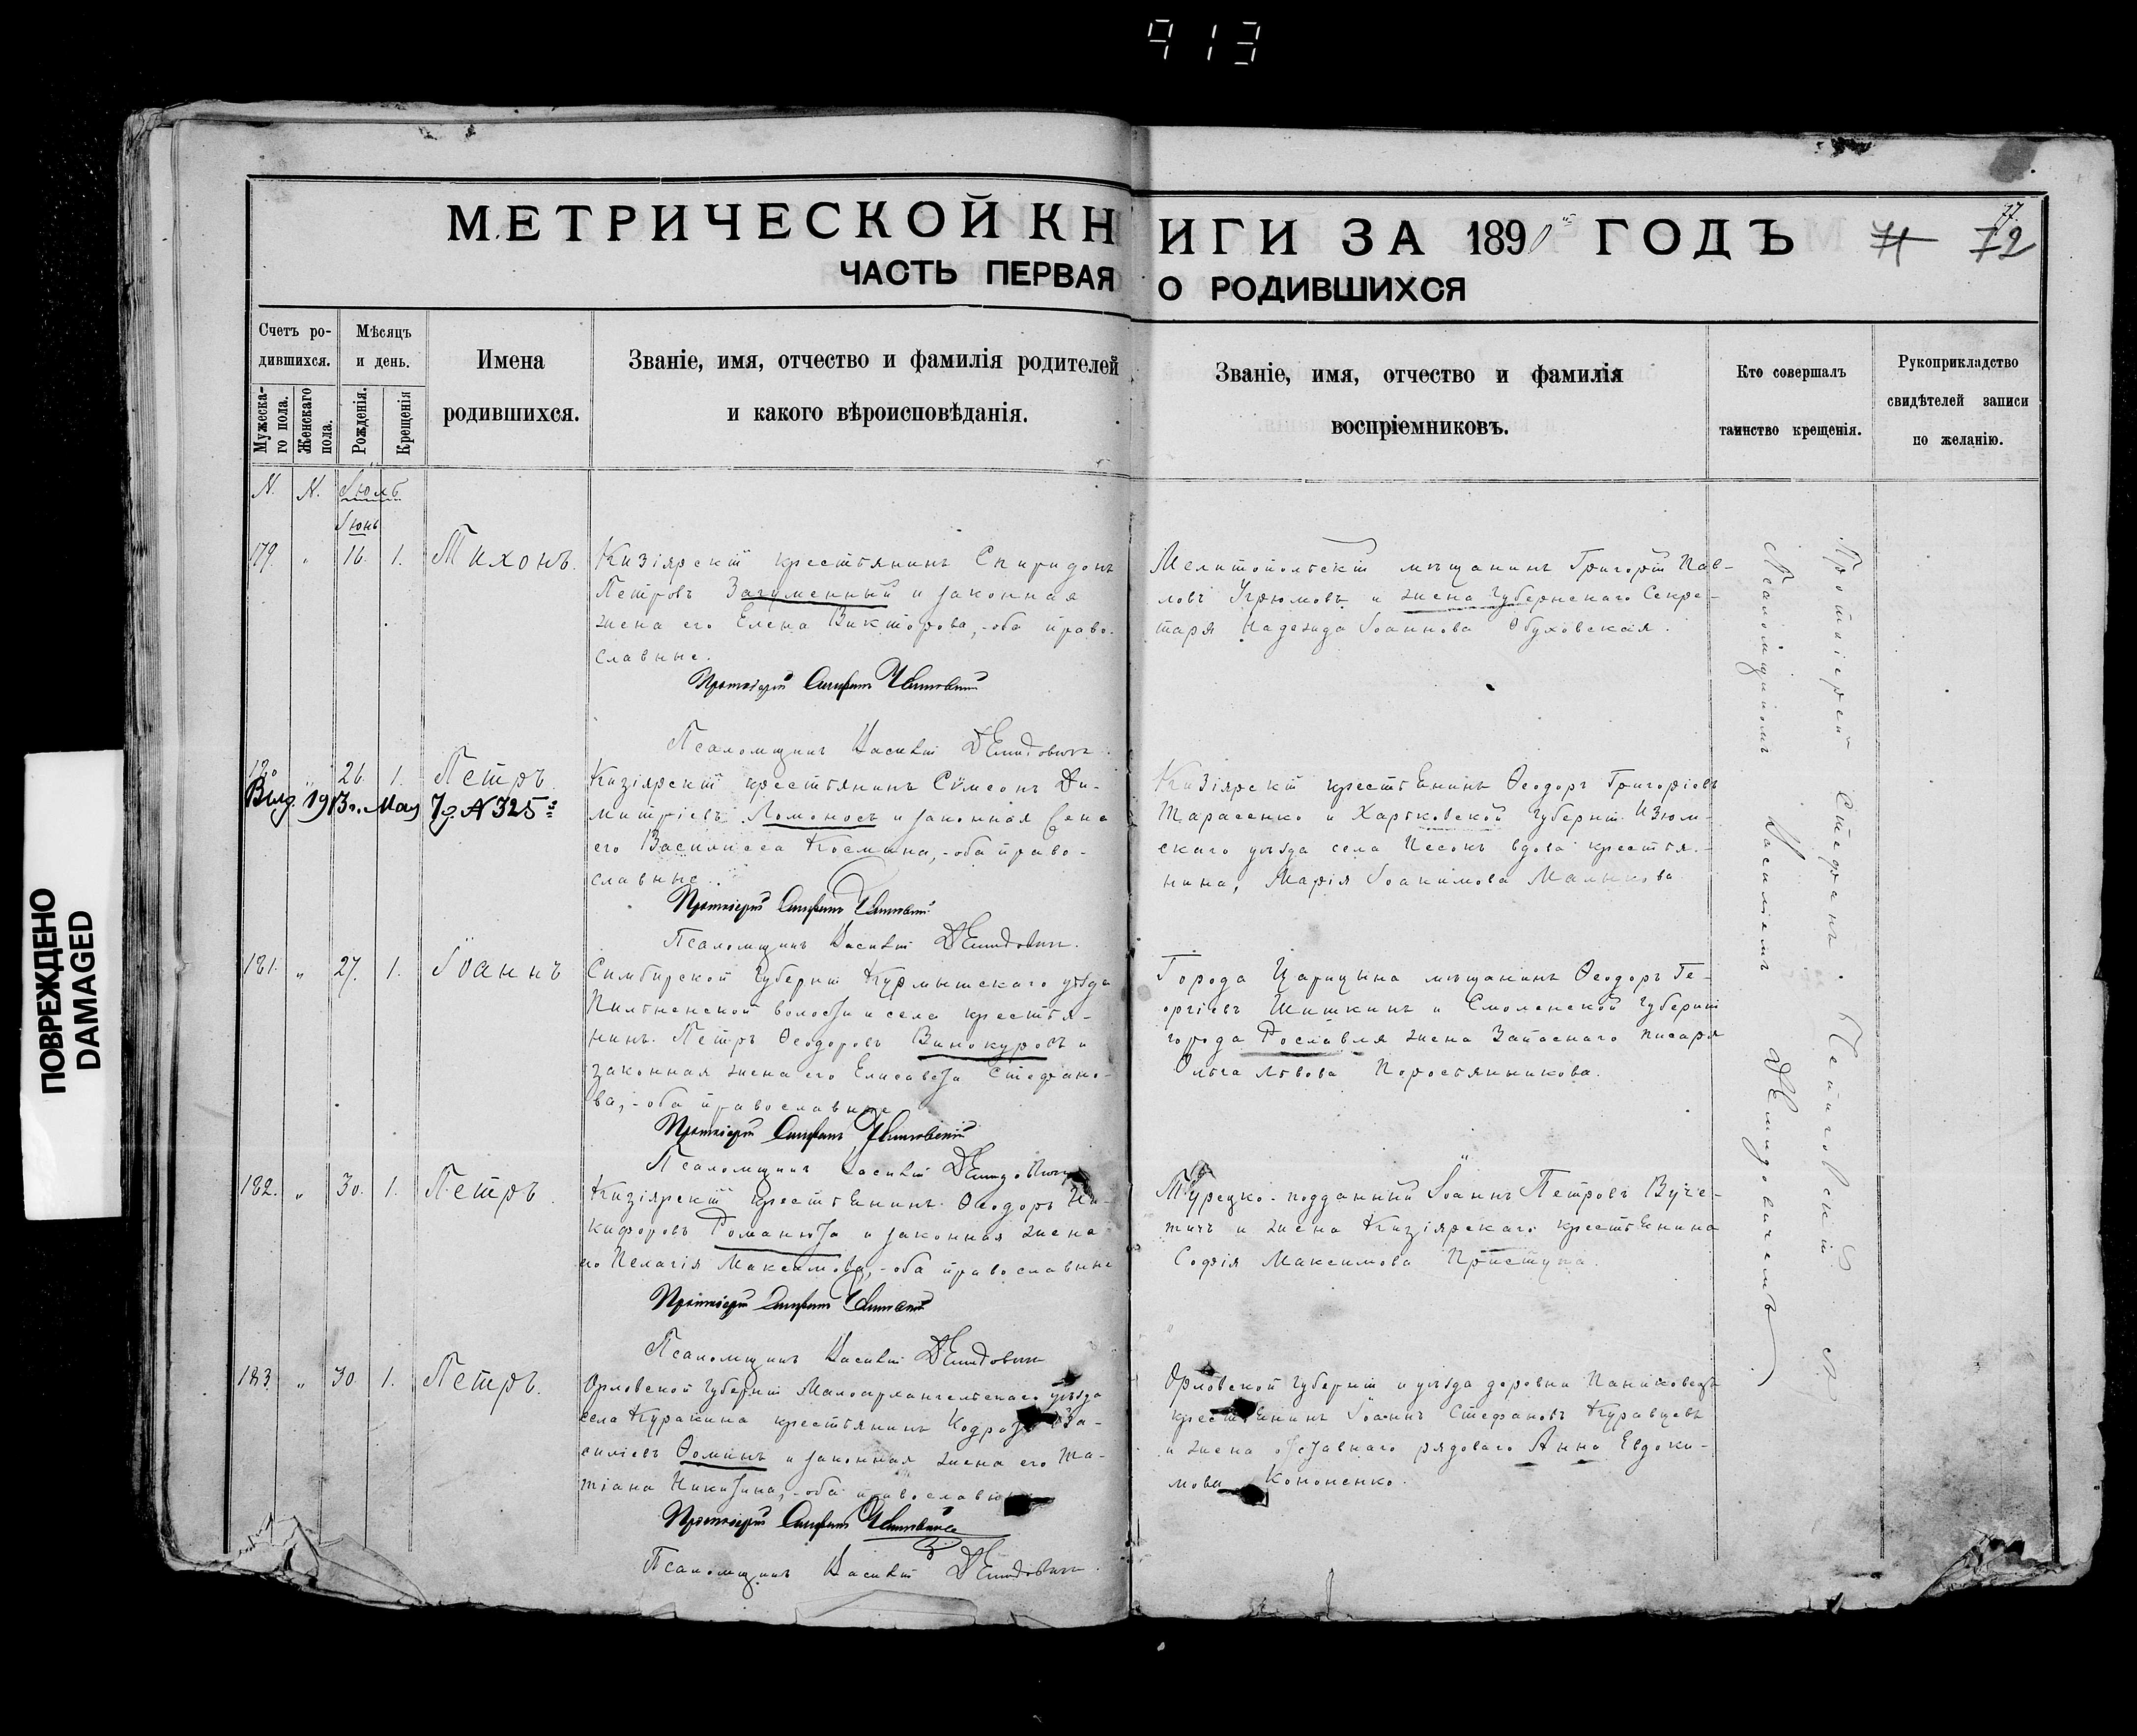 913
ПОВРЕЖДЕНО
DAMAGED
МЕТРИЧЕСКОЙ КНИГИ ЗА 1890й ГОДЪ
71 72
77.
ЧАСТЬ ПЕРВАЯ О РОДИВШИХСЯ
Счетъ ро-
дившихся.
Мужеска-
го пола.
Женскаго
пола.
Мѣсяцъ
и день.
Рожденія.
Крещенія
Имена
родившихся.
Званіе, имя, отчество и фамилія родителей
и какого вѣроисповѣданія.
Званіе, имя, отчество и фамилія
воспріемниковъ.
Кто совершалъ
таинство крещенія.
Рукоприкладство
свидѣтелей записи
по желанію.
N. N. Іюль
Іюнь
179. " 16. 1. Тихонъ.
Кизіярскій крестьянинъ Спиридонъ
Петровъ Загуменный и законная
жена его Елена Викторова,-оба право-
славные.
Протоіерей Стефанъ
Псаломщикъ Василій Демидовичъ.
Мелитопольскій мѣщанинъ Григорій Пав-
ловъ Угрюмовъ и жена Губернскаго Секре-
таря Надежда Іоаннова Обуховская.
180 " 26. 1. Петръ
Выд. 1913г. Мая 7д. N 325
Кизіярскій крестьянинъ Сѵмеонъ Ди-
митріевъ Ломоносъ и законная жена
его Василисса Космина,-оба право-
славные.
Протоіерей Стефанъ
Псаломщикъ Василій Демидовичъ.
Кизіярскій крестьянинъ Ѳеодоръ Григоріевъ
Тарасенко и Харьковской Губерніи Изюм-
скаго уѣзда села Песокъ вдова крестья-
нина, Марія Іоакимова
181. " 27. 1. Іоаннъ
Симбирской Губерніи Курмышскаго уѣзда
волости и села крестья-
нинъ Петръ Ѳеодоровъ Винокуровъ и
законная жена его Елисавета Стефано-
ва,-оба православные
Протоіерей Стефанъ
Псаломщикъ Василій Демидовичъ
Города Царицына мѣщанинъ Ѳеодоръ Ге-
оргіевъ Шишкинъ и Смоленской Губерніи
города Рославля жена Запаснаго писаря
Ольга Львова
182. " 30. 1. Петръ.
Кизіярскій крестьянинъ Ѳеодоръ Ни-
кифоровъ Романюта и законная жена
его Пелагія Максимова,-оба православные
Протоіерей Стефанъ
Псаломщикъ Василій Демидовичъ
Турецко-подданный Іоаннъ Петровъ Вуче-
тичъ и жена Кизіярскаго крестьянина
Софія Максимова Приступа.
183. " 30 1. Петръ.
Орловской Губерніи Малоархангельскаго уѣзда
села Куракина крестьянинъ Кодратъ Ва-
силіевъ Ѳоминъ и законная жена его Та-
тіана Никитина,-оба православные
Протоіерей Стефанъ
Псаломщикъ Василій Демидовичъ.
Орловской Губерніи и уѣзда деревни
крестьянинъ Іоаннъ Стефановъ Кравцевъ
и жена отставнаго рядоваго Анна Евдоки-
мова Кононенко.
Протоіерей Стефанъ
Псаломщикомъ Василіемъ Демидовичемъ